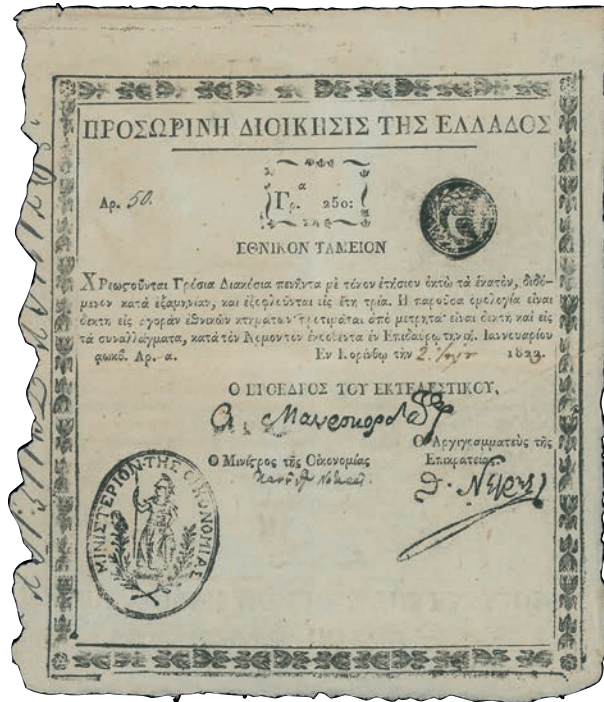 ΠΡΟΣΩΡΙΝΗ ΔΙΟΙΚΗΣΙΣ ΤΗΣ ΕΛΛΑΔΟΣ
Αρ. 50.
Γρ.α 250:
ΕΘΝΙΚΟΝ ΤΑΜΕΙΟΝ
ΧΡεωςοῦνται Γρόσια Διακόσια πενῆντα μὲ τόκον ἐτήσιον ὀκτὼ τὰ ἑκατὸν, διδό-
μενον κατὰ ἑξαμηνίαν, καὶ ἐξοφλοῦνται εἰς ἔτη τρία. Η παροῦσα ὁμολογία εἶναι
δεκτὴ εἰς ἀγορὰν ἐθνικῶν κτημάτων· προτιμᾶται ἀπὸ μετρητά· εἶναι δεκτὴ καὶ εἰς
τὰ συναλλάγματα, κατὰ τὸν Νόμον τὸν ἐκδοθέντα ἐν Επιδαύρῳ τὴν Ιαννουαρίου
αωκβ. Αρ. α.
Εν Κορίνθῳ τὴν 2. 182
Ο ΠΡΟΕΔΡΟΣ ΤΟΥ ΕΚΤΕΛΕΣΤΙΚΟΥ,
Α. Μαυροκορδάτος
Ο Αρχιγραμματεὺς τῆς
Επικρατείας.
Ο Μινίςρος τῆς Οἰκονομίας
Θ. Νέγρης
ΜΙΝΙΣΤΕΡΙΟΝ ΤΗΣ ΟΙΚΟΝΟΜΙΑΣ